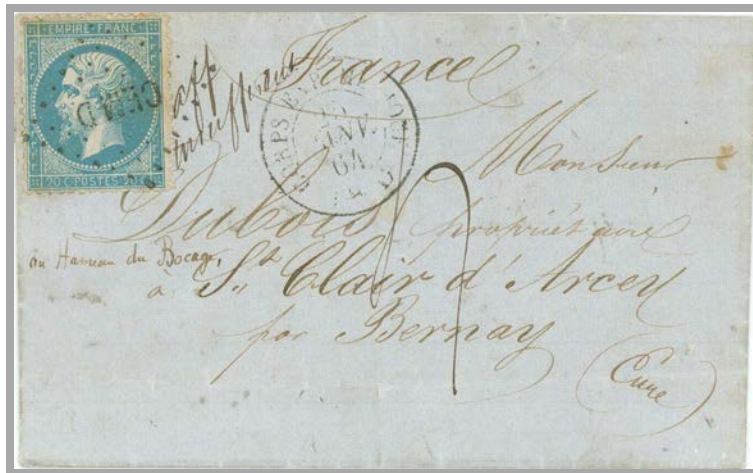 EMPIRE FRANC
20 C POSTES 20 C
CEM D
aff
insuffisant
France
CORPS EXP
JANV
64
Monsieur
Dubois propriétaire
au Hameau du Bocage,
à St Clair d'Arcey
par Bernay
(Eure)